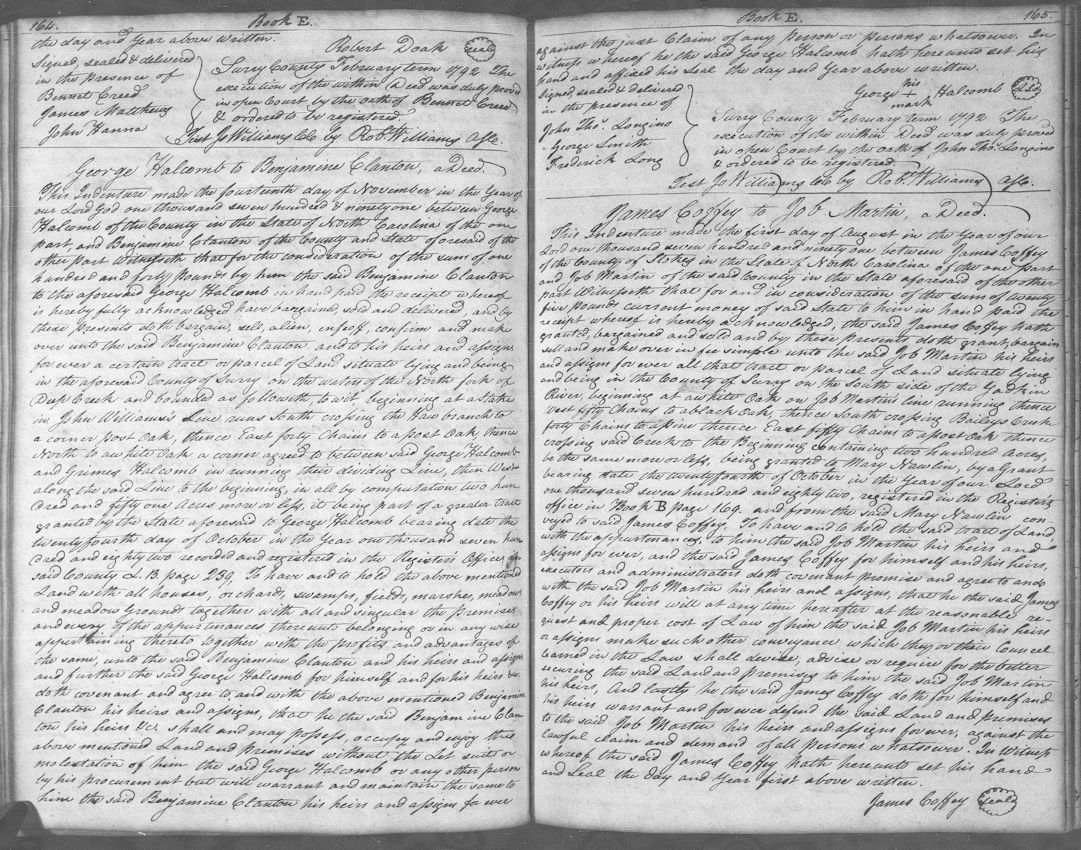 164. Book E.
the day and Year above written.
Robert Doak Seal
Signed, sealed & delivered
in the presence of
Bennet Creed
James Matthews
John Hanna
Surry County February term 1792 The
execution of the within Deed was duly proved
in open Court by the oath of Bennet Creed
& ordered to be registered
Test Jo Williams Clk by Robt. Williams
George Halcomb to Benjamine Clanton, a Deed.
This Indenture made the fourteenth day of November in the Year of
our Lord God one thousand seven hundred & ninety one between George
Halcomb of the County in the State of North Carolina of the one
part, and Benjamine Clanton of the County and State aforesaid of the
other part Witnesseth that for the consideration of the sum of one
hundred and forty Pounds by him the said Benjamine Clanton
to the aforesaid George Halcomb in hand paid the receipt whereof
is hereby fully acknowledged have bargained sold and delivered, and by
these presents doth bargain, sell, alien, enfeof, confirm and make
over unto the said Benjamine Clanton and to his heirs and assigns
for ever a certain tract or parcel of Land situate lying and being
in the aforesaid County of Surry on the waters of the North fork of
Deep Creek and bounded as followith to wit, beginning at a Stake
in John Williams's Line runs South crossing the Haw branch to
a corner post Oak, thence East forty Chains to a post Oak, thence
North to a white Oak a corner agreed to between said George Halcomb
and Grimes Halcomb in running their dividing Line, then West
along the said Line to the beginning, in all by computation two hun
dred and fifty one Acres more or less, it being part of a greater tract
granted by the State aforesaid to George Halcomb bearing date the
twenty fourth day of October in the Year one thousand seven hun
dred and eighty two recorded and registered in the Register's Office of
said County L. B. page 239, To have and to hold the above mentioned
Land with all houses, orchards, swamps, feeds, marshes, meadows
and meadow Grounds together with all and singular the premises
and every of the appurtenances thereunto belonging or in any wise
appertaining thereto together with the profits and advantages of
the same, unto the said Benjamine Clanton and his heirs and assigns
and further the said George Halcomb for himself and for his heirs &c.
doth covenant and agree to and with the above mentioned Benjamine
Clanton his heirs and assigns, that he the said Benjamine Clan
ton his heirs &c. shall and may possess, occupy and enjoy the
above mentioned Land and premises without the Let suit or
molestation of him the said George Halcomb or any other person
by his procurement but will warrant and maintain the same to
him the said Benjamine Clanton his heirs and assigns for ever
Book E. 165.
against the just Claim of any person or persons whatsoever. In
witness whereof he the said George Halcomb hath hereunto set his
hand and affixed his Seal the day and Year above written.
George his mark Halcomb Seal
Signed sealed & delivered
in the presence of
John Thos. Longino
George Smith
Frederick Long
Surry County February term 1792 The
execution of the within Deed was duly proved
in open Court by the oath of John Thos. Longino
& ordered to be registered
Test Jo Williams Clk by Robt. Williams
James Coffey to Job Martin, a Deed.
This Indenture made the first day of August in the Year of our
Lord one thousand seven hundred and ninety one between James Coffey
of the County of Stokes in the State of North Carolina of the one part
and Job Martin of the said County in the State aforesaid of the other
part Witnesseth that for and in consideration of the sum of twenty
five pounds current money of said State to him in hand paid the
receipt whereof is hereby acknowledged, the said James Coffey hath
granted, bargained and sold and by these Presents doth grant, bargain
sell and make over in fee simple unto the said Job Martin his heirs
and assigns for ever all that tract or parcel of Land situate lying
and being in the County of Surry on the South side of the Yadkin
River, beginning at a white Oak on Job Martins line running thence
West fifty Chains to a black Oak, thence South crossing Baileys Creek
forty Chains to a pine thence East fifty Chains to a post Oak thence
crossing said Creek to the Beginning Containing two hundred Acres,
be the same more or less, being granted to Mary Newlin, by a Grant
bearing date the twenty fourth of October in the Year of our Lord
one thousand seven hundred and eighty two, registered in the Registers
office in Book B page 169. and from the said Mary Newlin con
veyed to said James Coffey. To have and to hold the said tract of Land
with the appurtenances, to him the said Job Martin his heirs and
assigns for ever, and the said James Coffey for himself and his heirs,
executors and administrators doth covenant promise and agree to and
with the said Job Martin his heirs and assigns, that he the said James
Coffey or his heirs will at any time hereafter at the reasonable re-
quest and proper cost of Law of him the said Job Martin his heirs
or assigns make such other conveyance which they or their Councel
learned in the Law shall devise, advise or require for the better
securing the said Land and premises to him the said Job Martin
his heirs, And lastly he the said James Coffey doth for himself and
his heirs warrant and for ever defend the said Land and premises
to the said Job Martin his heirs and assigns for ever, against the
lawful claim and demand of all persons whatsoever. In Witness
whereof the said James Coffey hath hereunto set his hand
and Seal the day and Year first above written.
James Coffey Seal